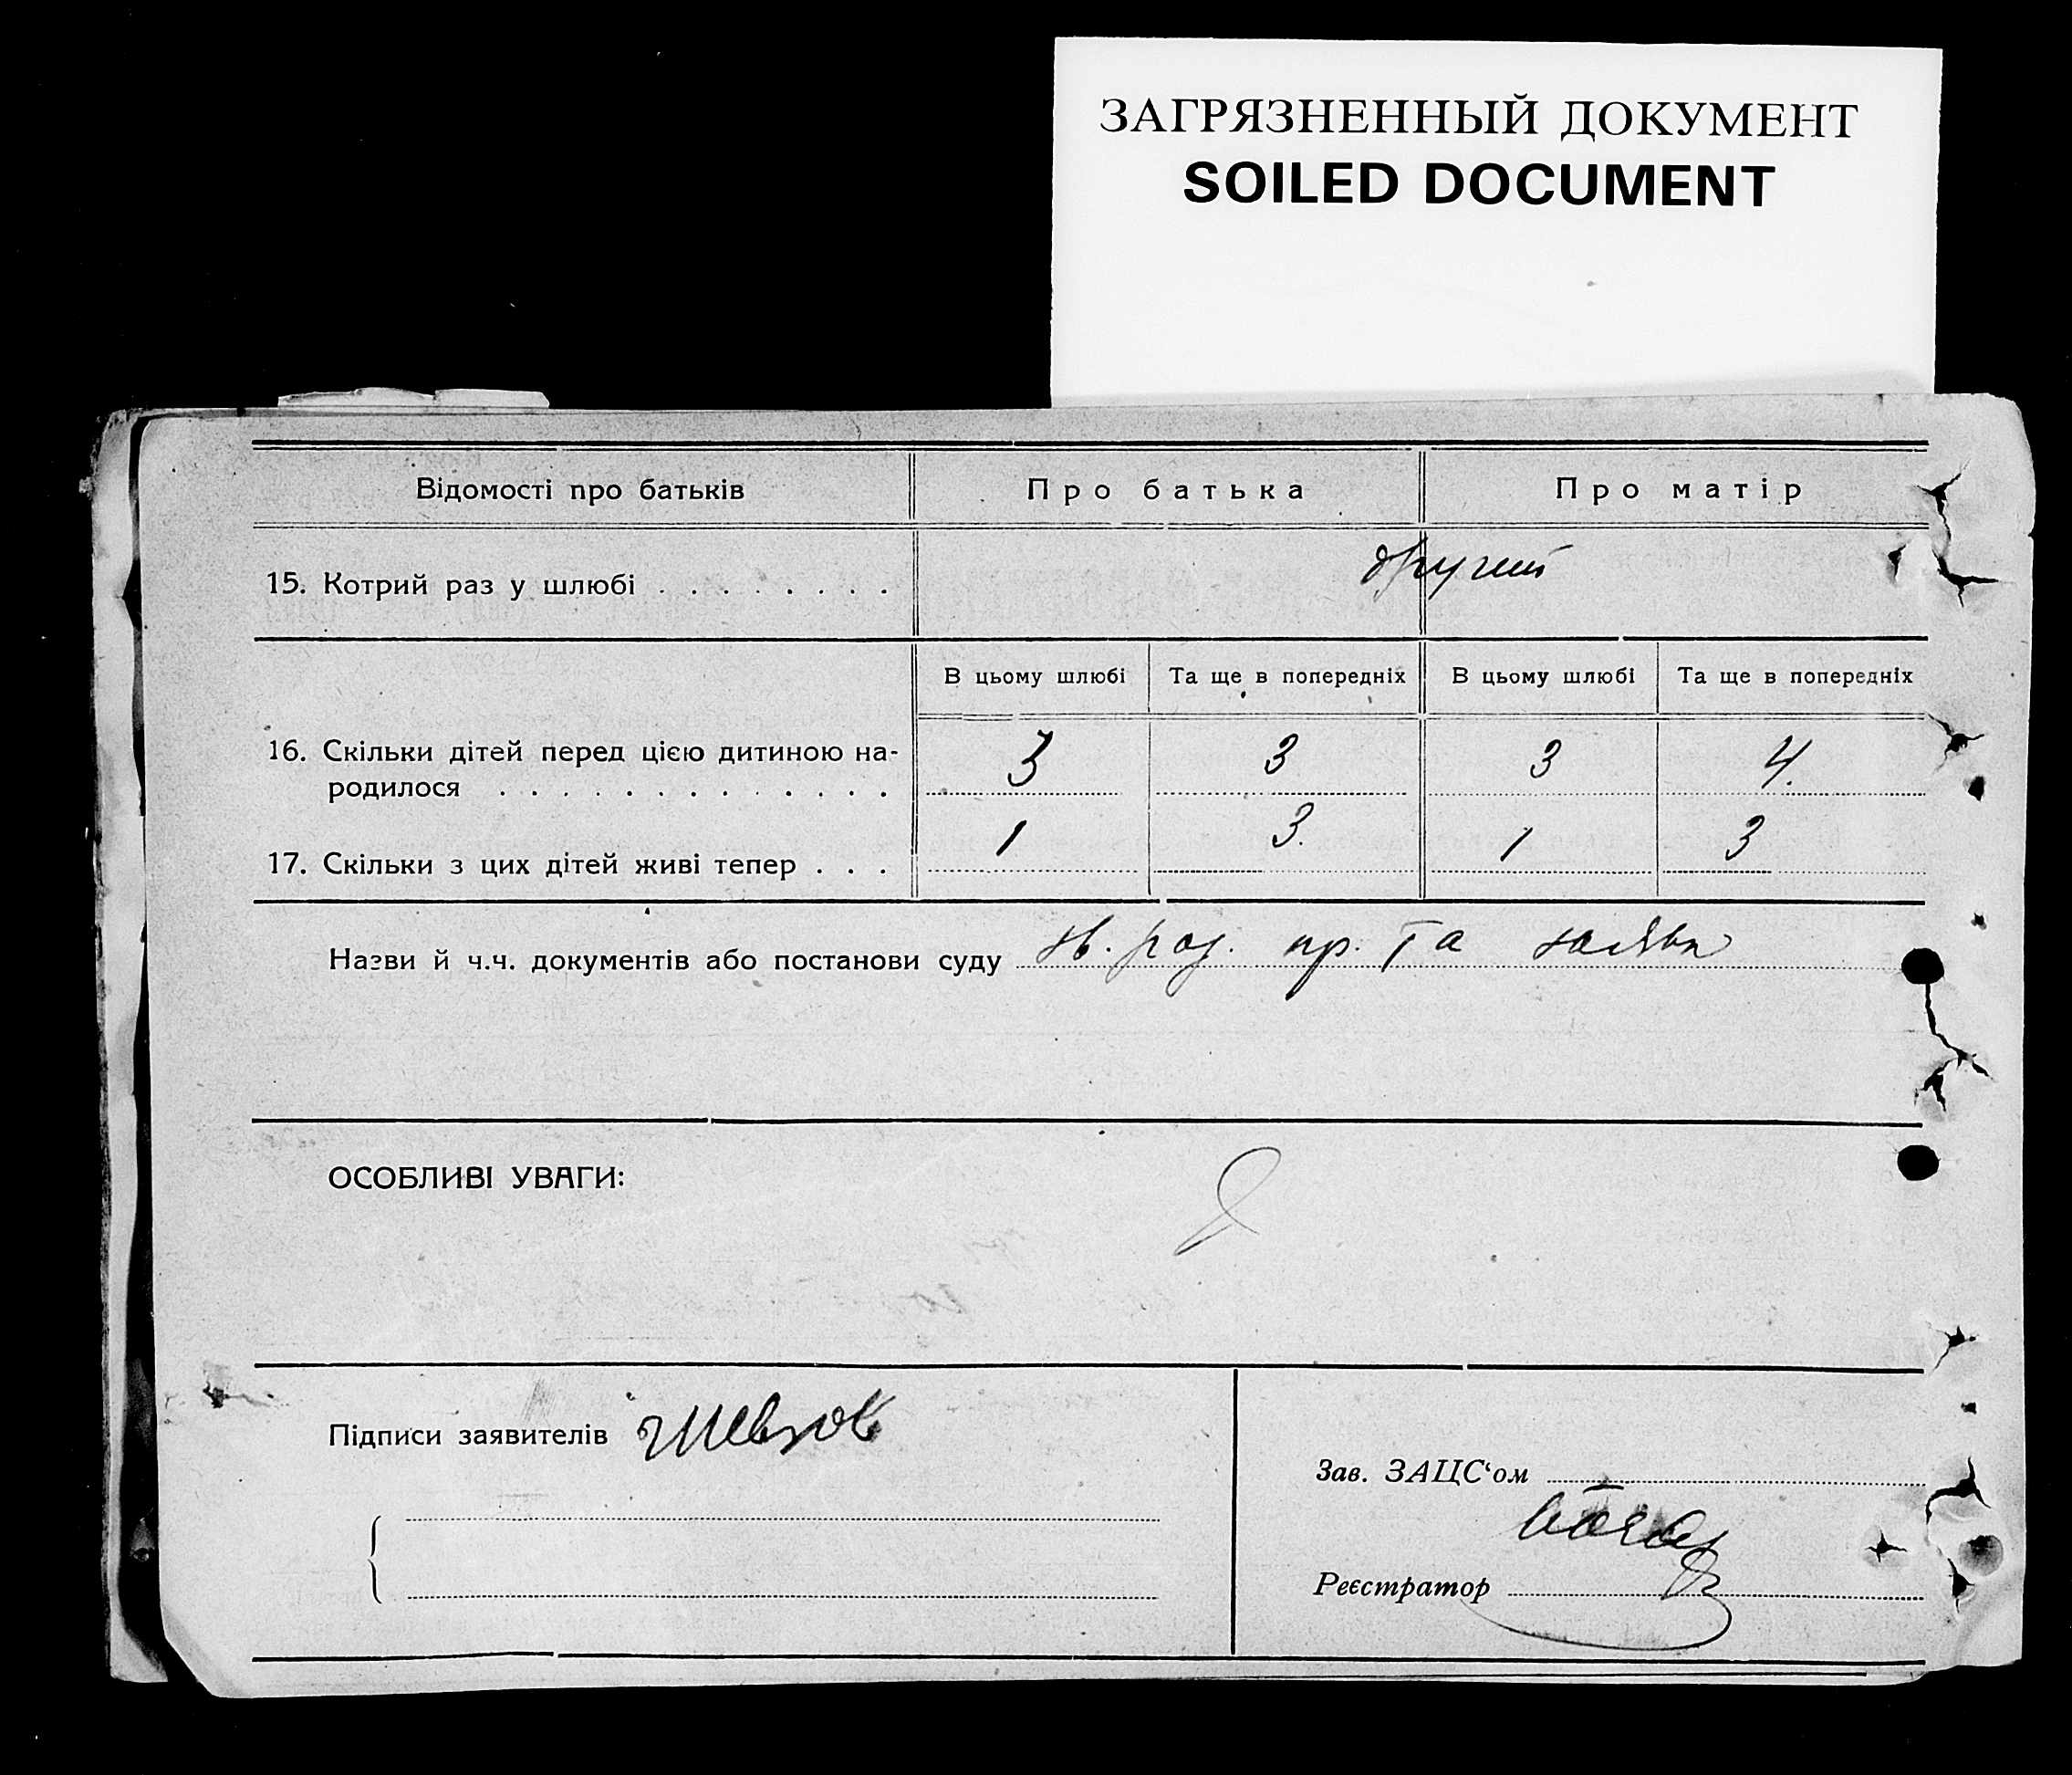 ЗАГРЯЗНЕННЫЙ ДОКУМЕНТ
SOILED DOCUMENT
Відомості про батьків Про батька Про матір
15. Котрий раз у шлюбі . . . . . . . . другий
В цьому шлюбі Та ще в попередніх В цьому шлюбі Та ще в попередніх
16. Скільки дітей перед цією дитиною на-
родилося . . . . . . . . . . . . . 3 3 3 4.
17. Скільки з цих дітей живі тепер . . . 1 3. 1 3
Назви й ч.ч. документів або постанови суду та
ОСОБЛИВІ УВАГИ:
Підписи заявителів
Зав. ЗАЦС‘ом
Реєстратор